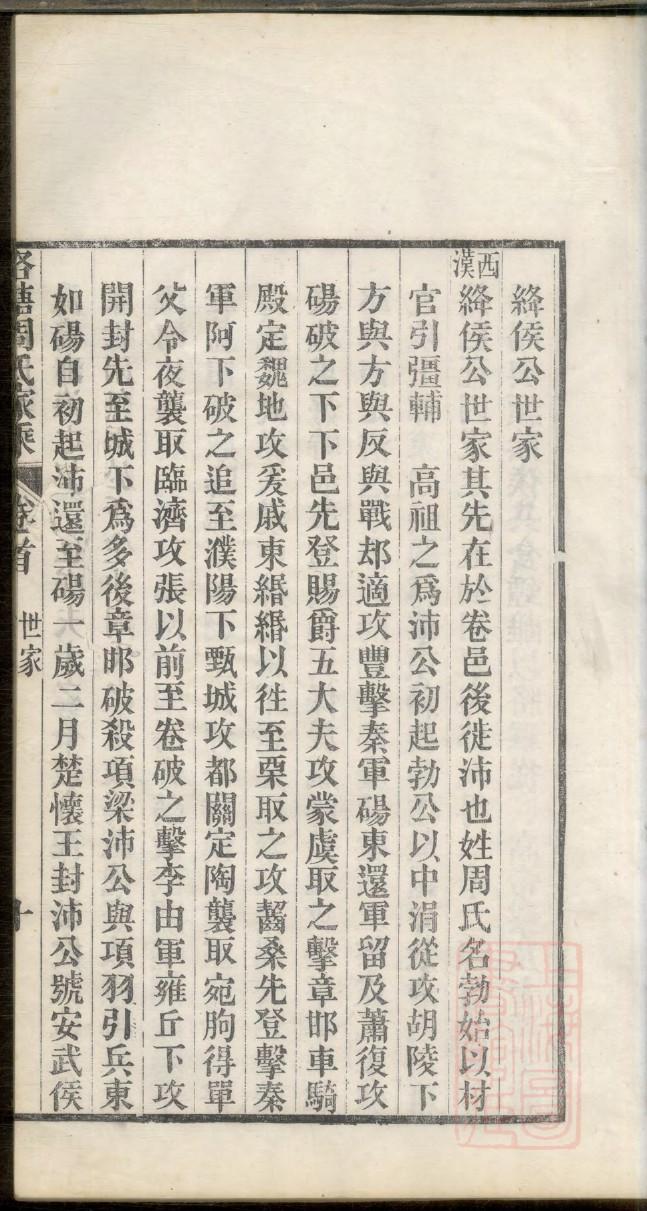 絳侯公世家
西漢絳侯公世家其先在於卷邑後徙沛也姓周氏名勃始以材
官引彊輔　高祖之爲沛公初起勃公以中涓從攻胡陵下
方與方與反與戰却適攻豐擊秦軍碭東還軍留及蕭復攻
碭破之下下邑先登賜爵五大夫攻蒙虞取之擊章邯車騎
殿定魏地攻爰戚東緡緡以徃至栗取之攻齧桑先登擊秦
軍阿下破之追至濮陽下甄城攻都關定陶襲取宛朐得單
父令夜襲取臨濟攻張以前至卷破之擊李由軍雍丘下攻
開封先至城下爲多後章邯破殺項梁沛公與項羽引兵東
如碭自初起沛還至碭一歲二月楚懷王封沛公號安武侯
周氏家乘 卷首 世家 十